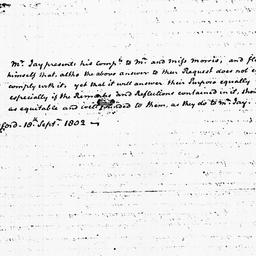 Mr. Jay presents his compts. to Mr. and miss morris, and fl
himself that altho the above answer to their Request does not e
comply with it, yet that it will answer their Purpose equally
especially if the Remarks and Reflections contained in it, sho
as equitable and well founded to them, as they do to Mr. Jay.
ford - 18th. Septr. 1802